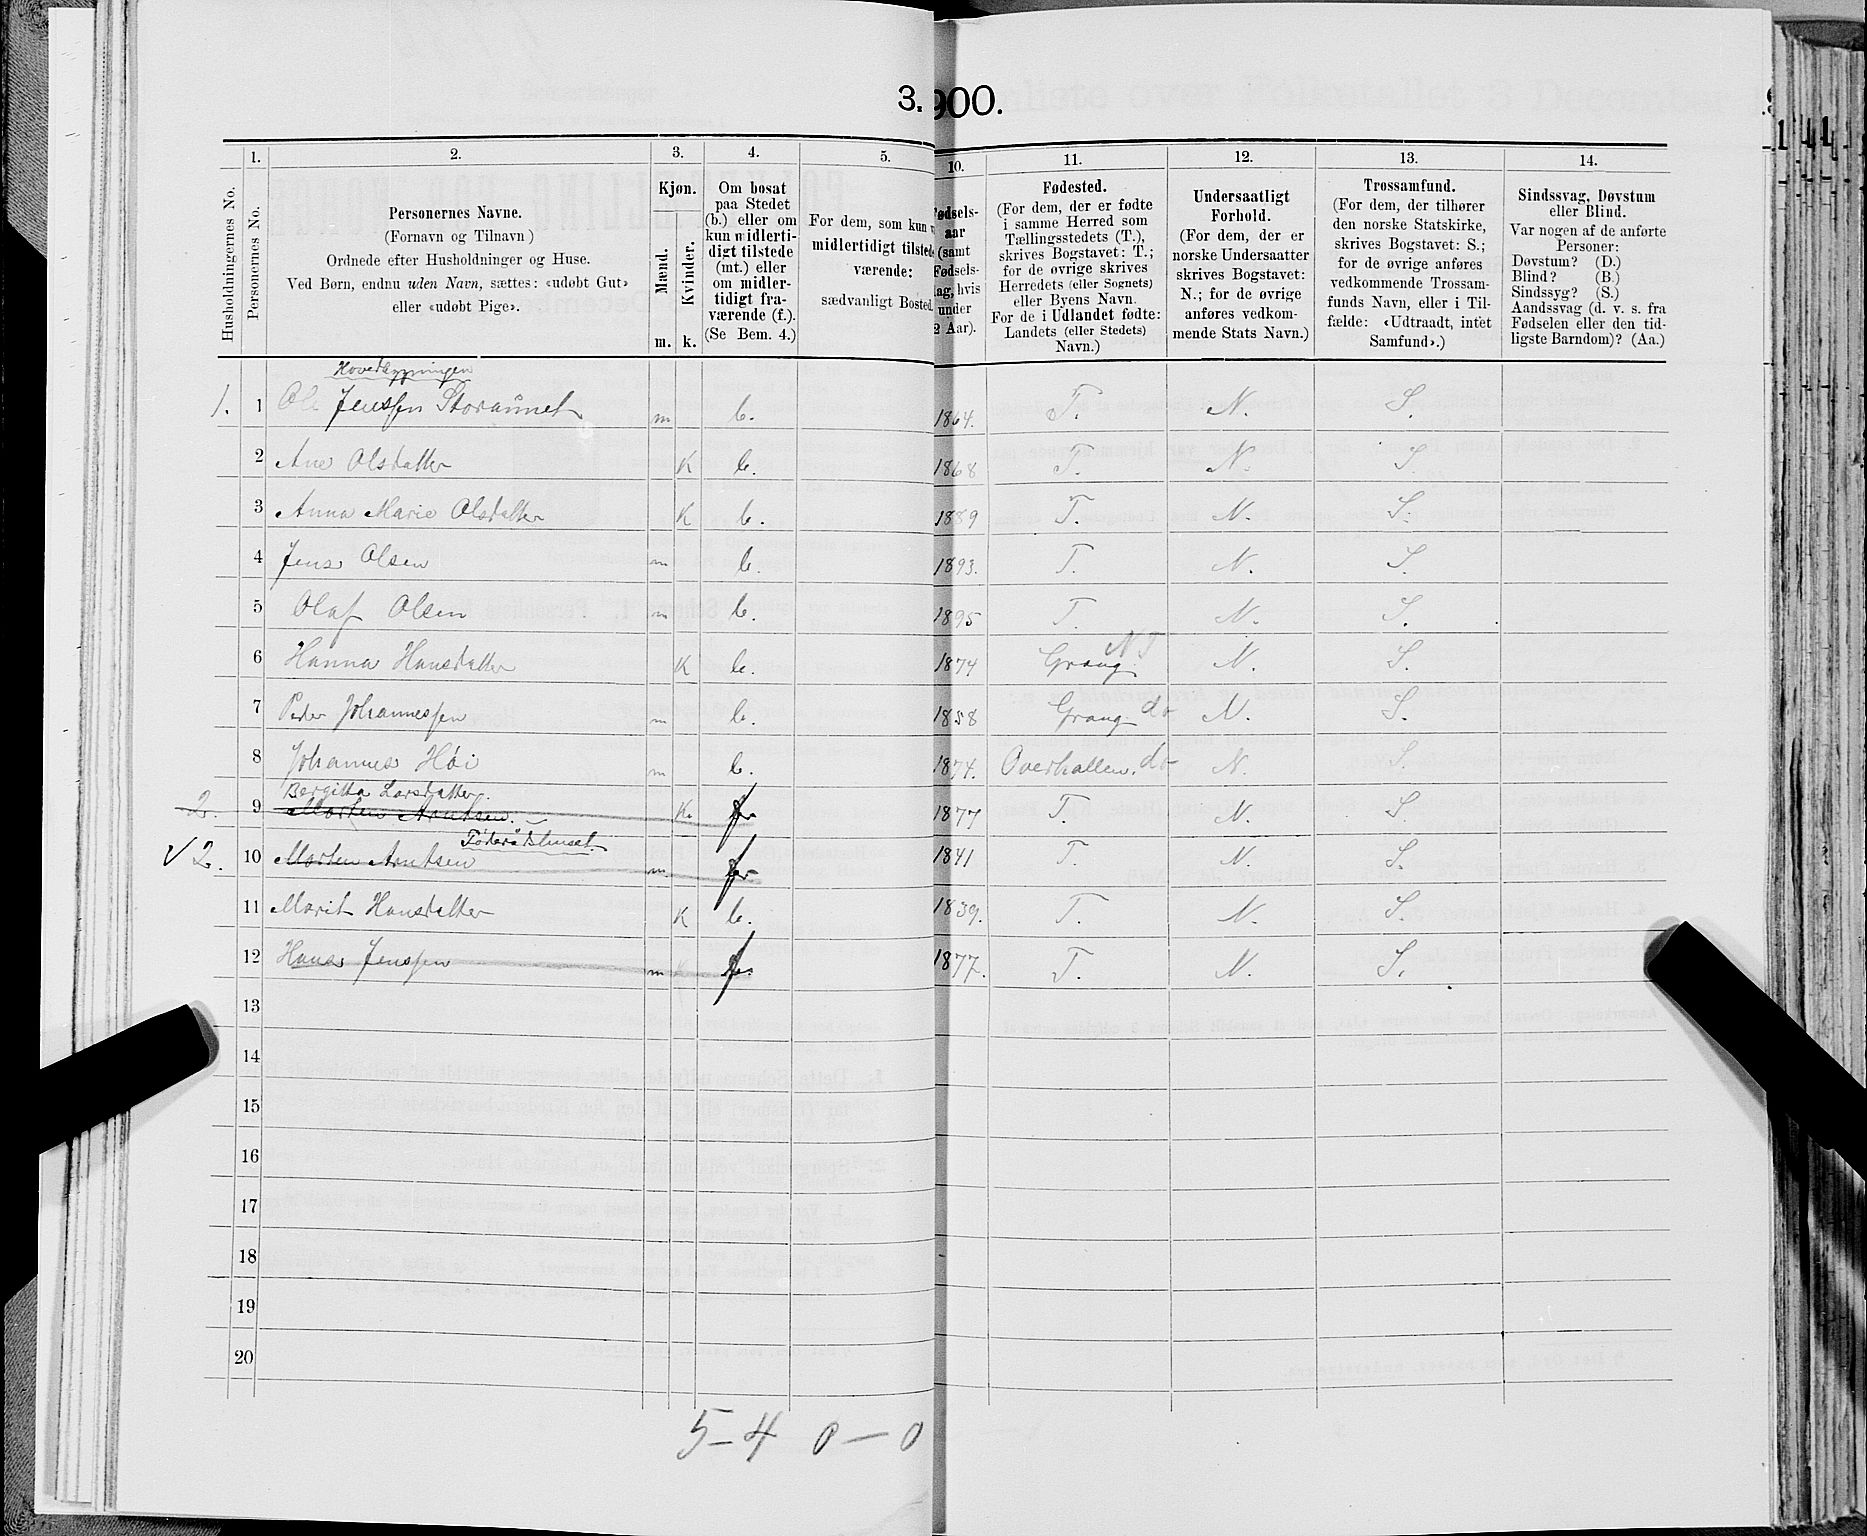 3.
900.
1.
2.
3.
4.
5.
10.
11.
12.
13.
14.
Husholdningernes No.
Personernes No.
Personernes Navne.
(Fornavn og Tilnavn)
Ordnede efter Husholdninger og Huse.
Ved Børn, endnu uden Navn, sættes: «udøbt Gut»
eller «udøbt Pige».
Kjøn.
Mænd.
Kvinder.
m.
k.
Om bosat
paa Stedet
(b.) eller om
kun midlerti-
digt tilstede
(mt.) eller
om midler-
tidigt fra-
værende (f.).
(Se Bem. 4.)
For dem, som kun
midlertidigt tilstede
værende:
sædvanligt Bosted.
Fødsels-
aar
(samt
Fødsels-
dag, hvis
under
2 Aar).
Fødested.
(For dem, der er fødte
i samme Herred som
Tællingsstedets (T.),
skrives Bogstavet: T.;
for de øvrige skrives
Herredets (eller Sognets)
eller Byens Navn.
For de i Udlandet fødte:
Landets (eller Stedets)
Navn.)
Undersaatligt
Forhold.
(For dem, der er
norske Undersaatter
skrives Bogstavet:
N.; for de øvrige
anføres vedkom-
mende Stats Navn.)
Trossamfund.
(For dem, der tilhører
den norske Statskirke,
skrives Bogstavet: S.;
for de øvrige anføres
vedkommende Trossam-
funds Navn, eller i Til-
fælde: «Udtraadt, intet
Samfund».)
Sindssvag, Døvstum
eller Blind.
Var nogen af de anførte
Personer:
Døvstum? (D.)
Blind? (B.)
Sindssyg? (S.)
Aandssvag (d. v. s. fra
Fødselen eller den tid-
ligste Barndom)? (Aa.)
Hovedbygningen
1. 1 Ole Jenssen Storaunet m b. 1864. T. N. S.
2 Ane Olsdatter K b. 1868 T. N. S.
3 Anna Marie Olsdatter K b. 1889 T. N. S.
4 Jens Olsen m b. 1893. T. N. S.
5 Olaf Olsen m b. 1895 T. N. S.
6 Hanna Hansdatter K b. 1874 Grong NT N. S.
7 Peder Johannessen m b. 1858 Grong do N. S.
8 Johannes Høi m b. 1874. Overhallen. do N. S.
Bergitta Larsdatter.
2. 9 Morten Arntsen. K. f 1877 T. N. S.
Føderådshuset.
√ 2. 10 Morten Arntsen m f 1841 T. N. S.
11 Marit Hansdatter K b. 1839. T. N. S.
12 Hans Jenssen m f 1877. T. N. S.
13
14
15
16
17
18
19
20
5–4 0–0